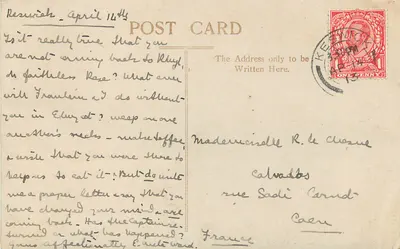 Keswick - April 14th
POST CARD
Is it really true that you
are not coming back to Rhyl,
oh faithless Rose? What ever
will Fraulein & I do without
you in Elwy at? weep on one
another's necks - make toffee,
& wish that you were there to
help us to eat it? But do write
me a proper letter & say that you
have changed your mind & are
coming back. Has the Captain re-
turned or what has happened?
Yours affectionately
The Address only to be
Written Here.
KESWICK
AP 14
13
Mademoiselle R. le
Calvados
rue Sadi Carnot
Caen
France